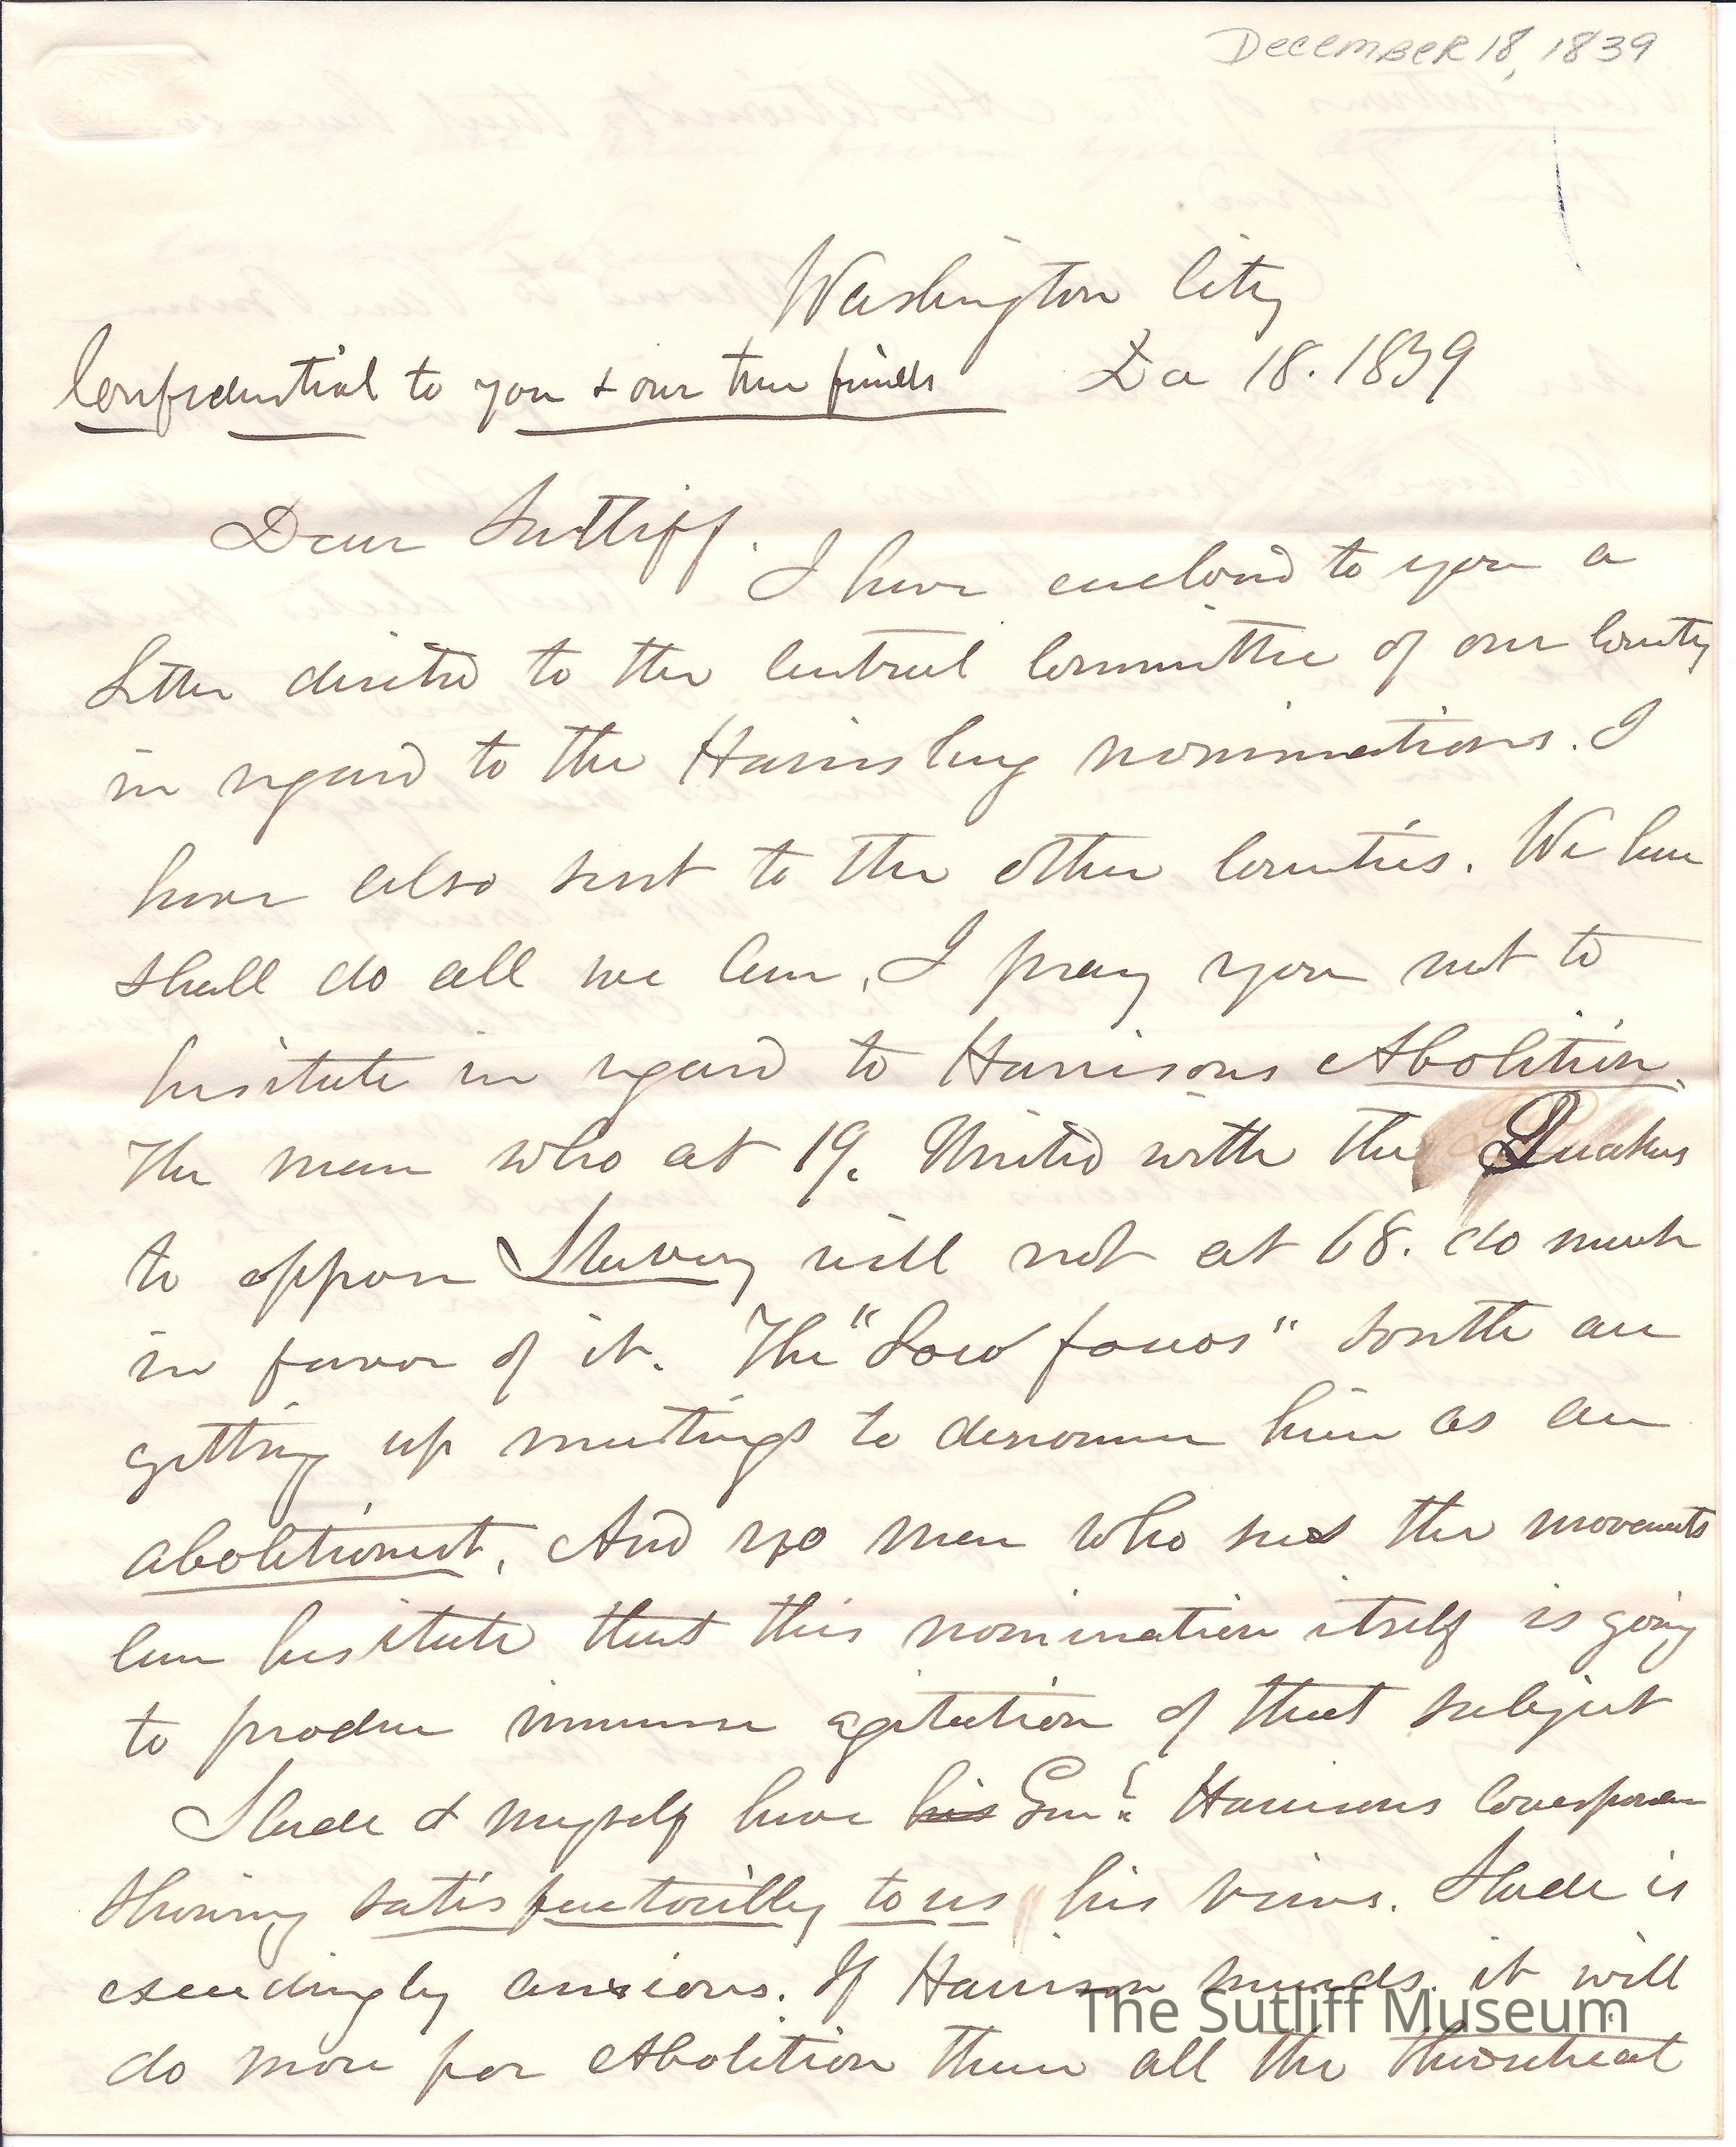 December 18, 1839
Washington City
Confidential to you & our true friends Dec 18. 1839
Dear Sutliff. I have enclosed to you a
letter directed to the Central Committee of our County
in regard to the Harrisburg nominations. I
have also sent to the other Counties. We here
shall do all we can. I pray you not to
hesitate in regard to Harrisons Abolition.
The man who at 19. United with the Quakers
to oppose Slavery will not at 68. do much
in favor of it. The "Loco focos" South are
getting up meetings to denounce him as an
abolitionist. And no man who sees the movements
can hesitate that this nomination itself is going
to produce immense agitation of that subject
Slade & myself have his Genl Harrisons Correspondence
showing satisfactorilly to us his views. Slade is
exceedingly anxious. If Harrison succeeds. it will
do more for Abolition than all the theoretical
The Sutliff Museum